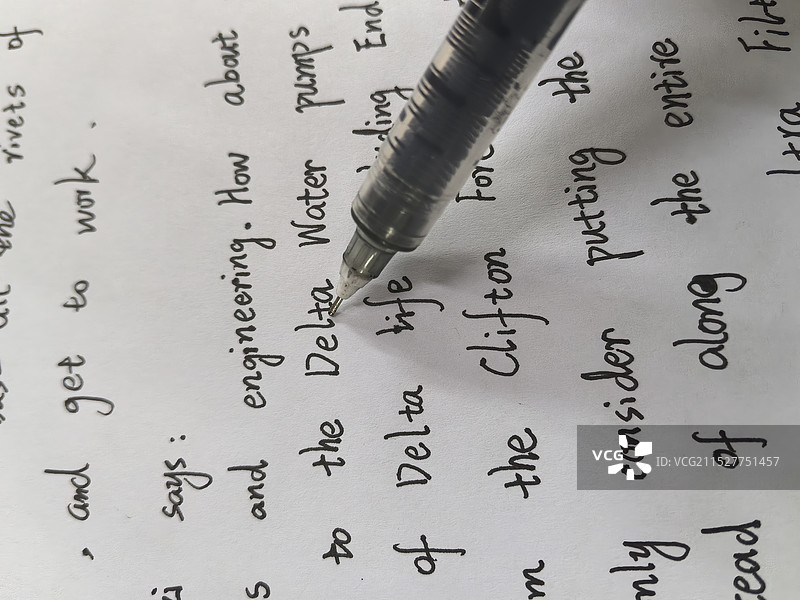 the rivets of
, and get to work.
says:
and engineering. How about
to the Delta Water pumps
of Delta Life End
the Clifton
consider putting the
of along the entire
VCG
ID: VCG211527751457